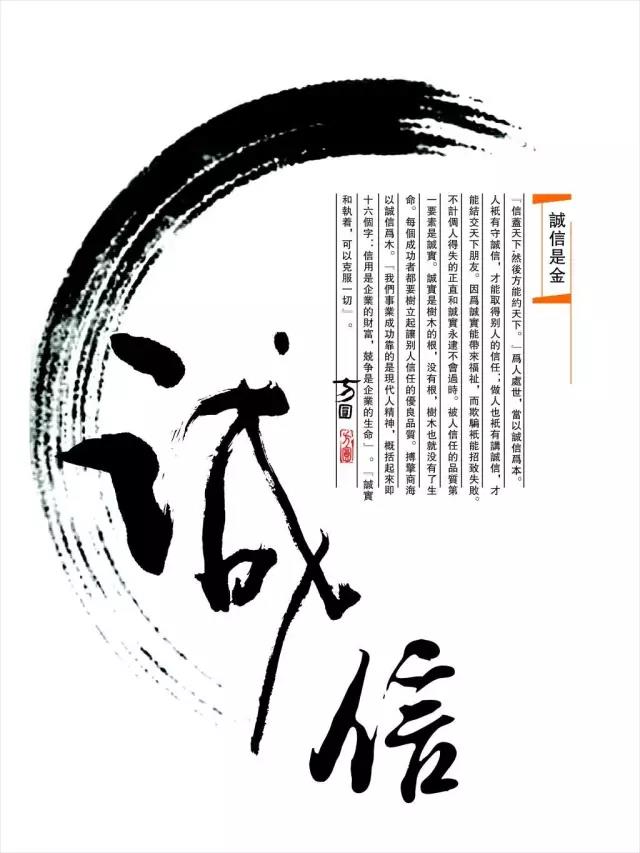 誠信是金
『信蓋天下,然後方能約天下。』爲人處世,當以誠信爲本。
人衹有守誠信,才能取得别人的信任;做人也衹有講誠信,才
能結交天下朋友。因爲誠實能帶來福祉,而欺騙衹能招致失敗。
不計個人得失的正直和誠實永逮不會過時。被人信任的品質第
一要素是誠實。誠實是樹木的根,没有根,樹木也就没有了生
命。每個成功者都要樹立起讓别人信任的優良品質。搏擊商海
以誠信爲木。『我們事業成功靠的是現代人精神,概括起來即
十六個字:信用是企業的財富,競争是企業的生命』。『誠實
和執着,可以克服一切』。
方圓
方圓
誠
信